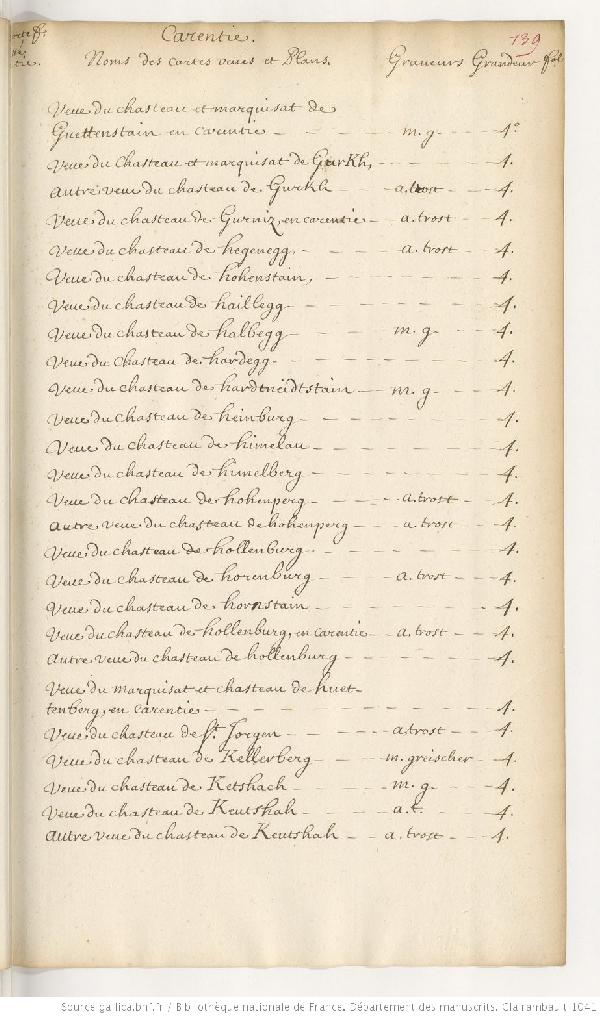 Carentie. 139
Noms des cartes veues et Plans. Graveurs Grandeur fol
Veue du chasteau et marquisat de
Guettenstain en carentie - m. g. - 4°
Veue du Chasteau et marquisat de Gurkh, - 4.
autre veue du chasteau de Gurkh - a. trost - 4.
Veue du chasteau de Gurniz, en carentie - a. trost - 4.
Veue du chasteau de hegenegg, - a. trost - 4.
Veue du chasteau de hohenstain, - 4.
Veue du chasteau de haillegg - 4.
Veue du chasteau de halbegg - m. g. - 4.
Veue du Chasteau de hardegg - 4.
Veue du chasteau de hardtneidtstain - m. g. - 4.
Veue du chasteau de heinburg - 4.
Veue du chasteau de himelau - 4.
Veue du chasteau de himelberg - 4.
Veue du chasteau de hohenperg - a. trost - 4.
autre veue du chasteau de hohenperg - a. trost - 4.
Veue du chasteau de hollenburg - 4.
Veue du chasteau de horenburg - a. trost - 4.
Veue du chasteau de hornstain - 4.
Veue du chasteau de hollenburg, en carentie - a. trost - 4.
Autre veue du chasteau de hollenburg - 4.
Veue du marquisat et chasteau de huet-
tenberg, en carentie - 4.
Veue du chasteau de St. Jorgen - a trost - 4.
Veue du chasteau de Kellerberg - m. greischer - 4.
Veue du chasteau de Ketshach - m. g. - 4.
Veue du chasteau de Keutshah - a. t. - 4.
Autre veue du chasteau de Keutshah - a. trost - 4.
Source gallica.bnf.fr / Bibliothèque nationale de France. Département des manuscrits. Clairambault 1041